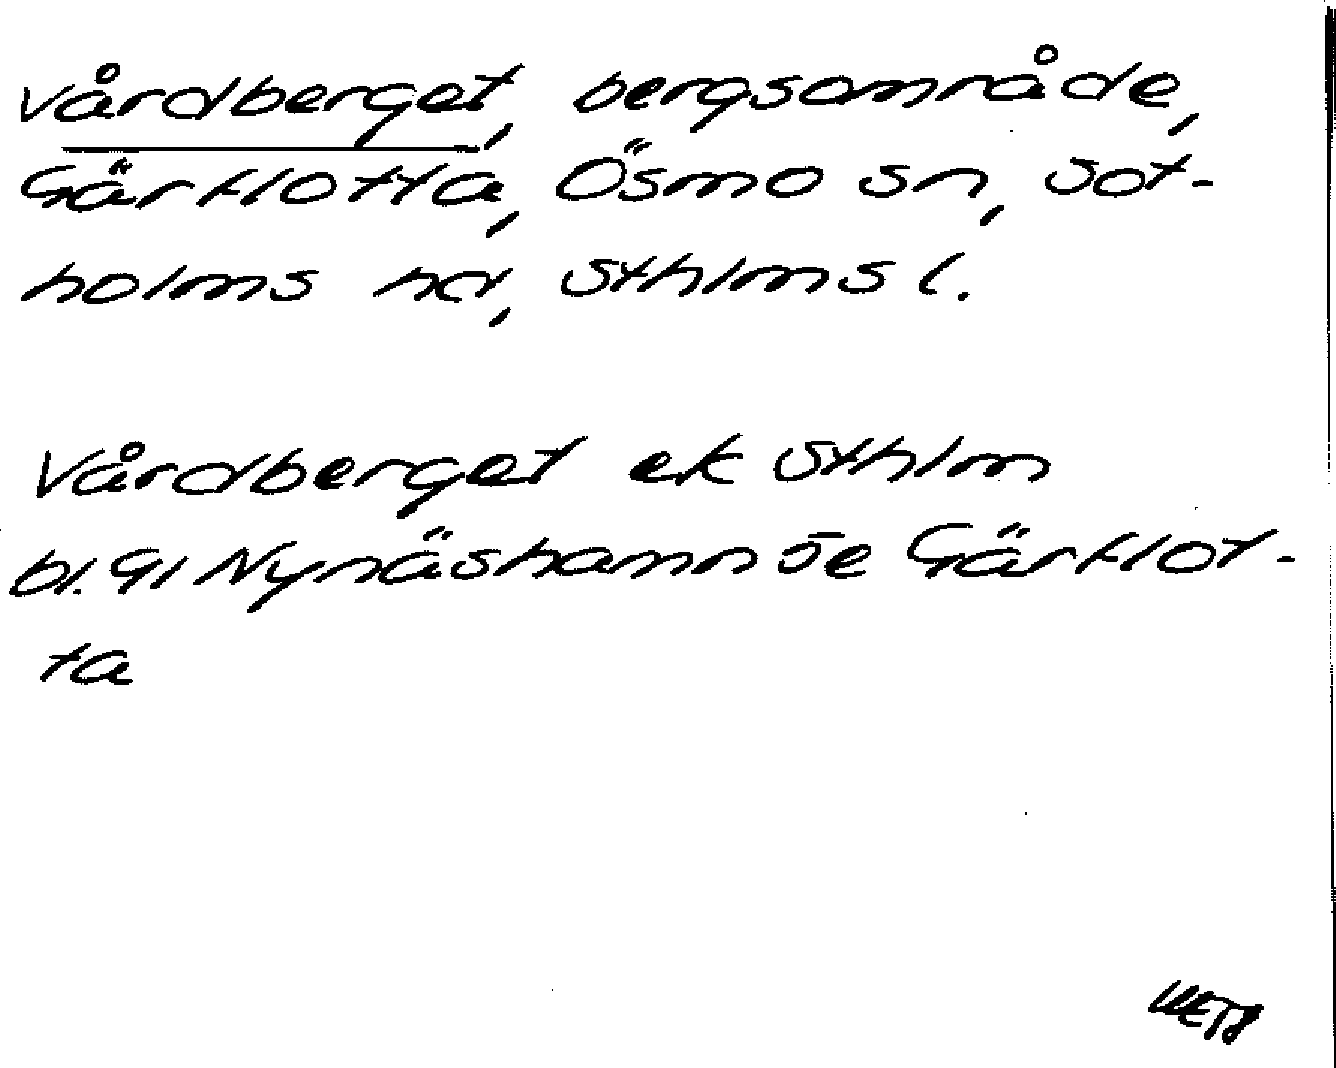 Vårdberget, bergsområde,
Gärflotta, Ösmo sn, Sot-
holms hd, Sthlms l.
Vårdberget ek Sthlm
bl. 91 Nynäshamn Se Gärflot-
ta